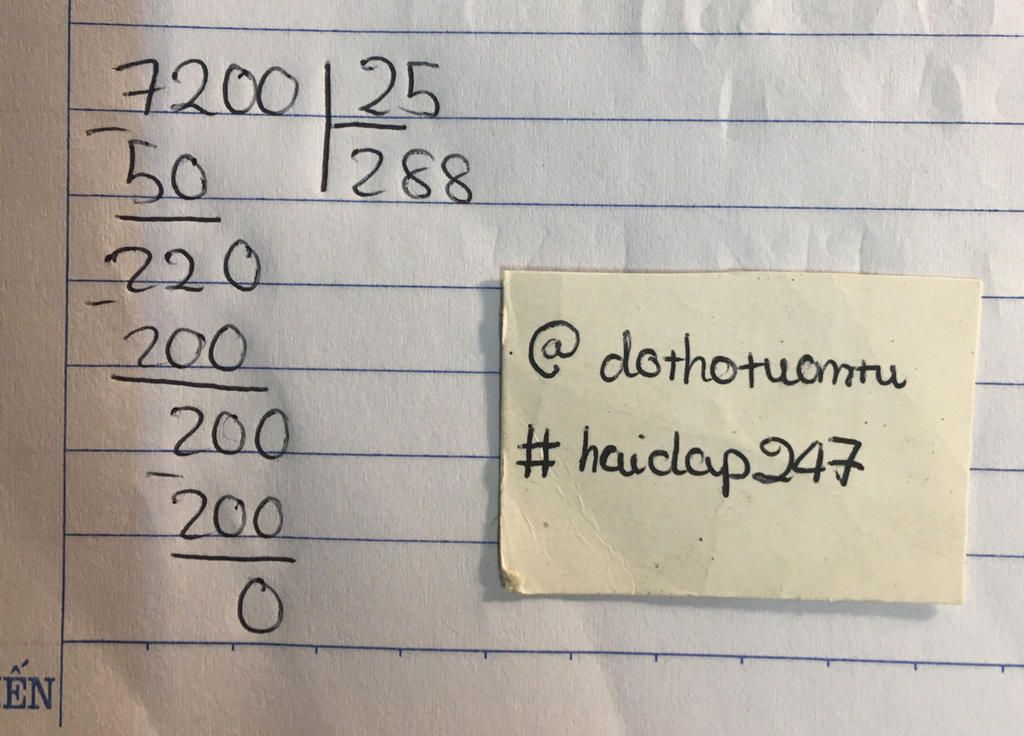 7200 | 25
- 50 | 288
220
- 200
200
- 200
0
@ dothotuomtu
# haidap247
ẾN